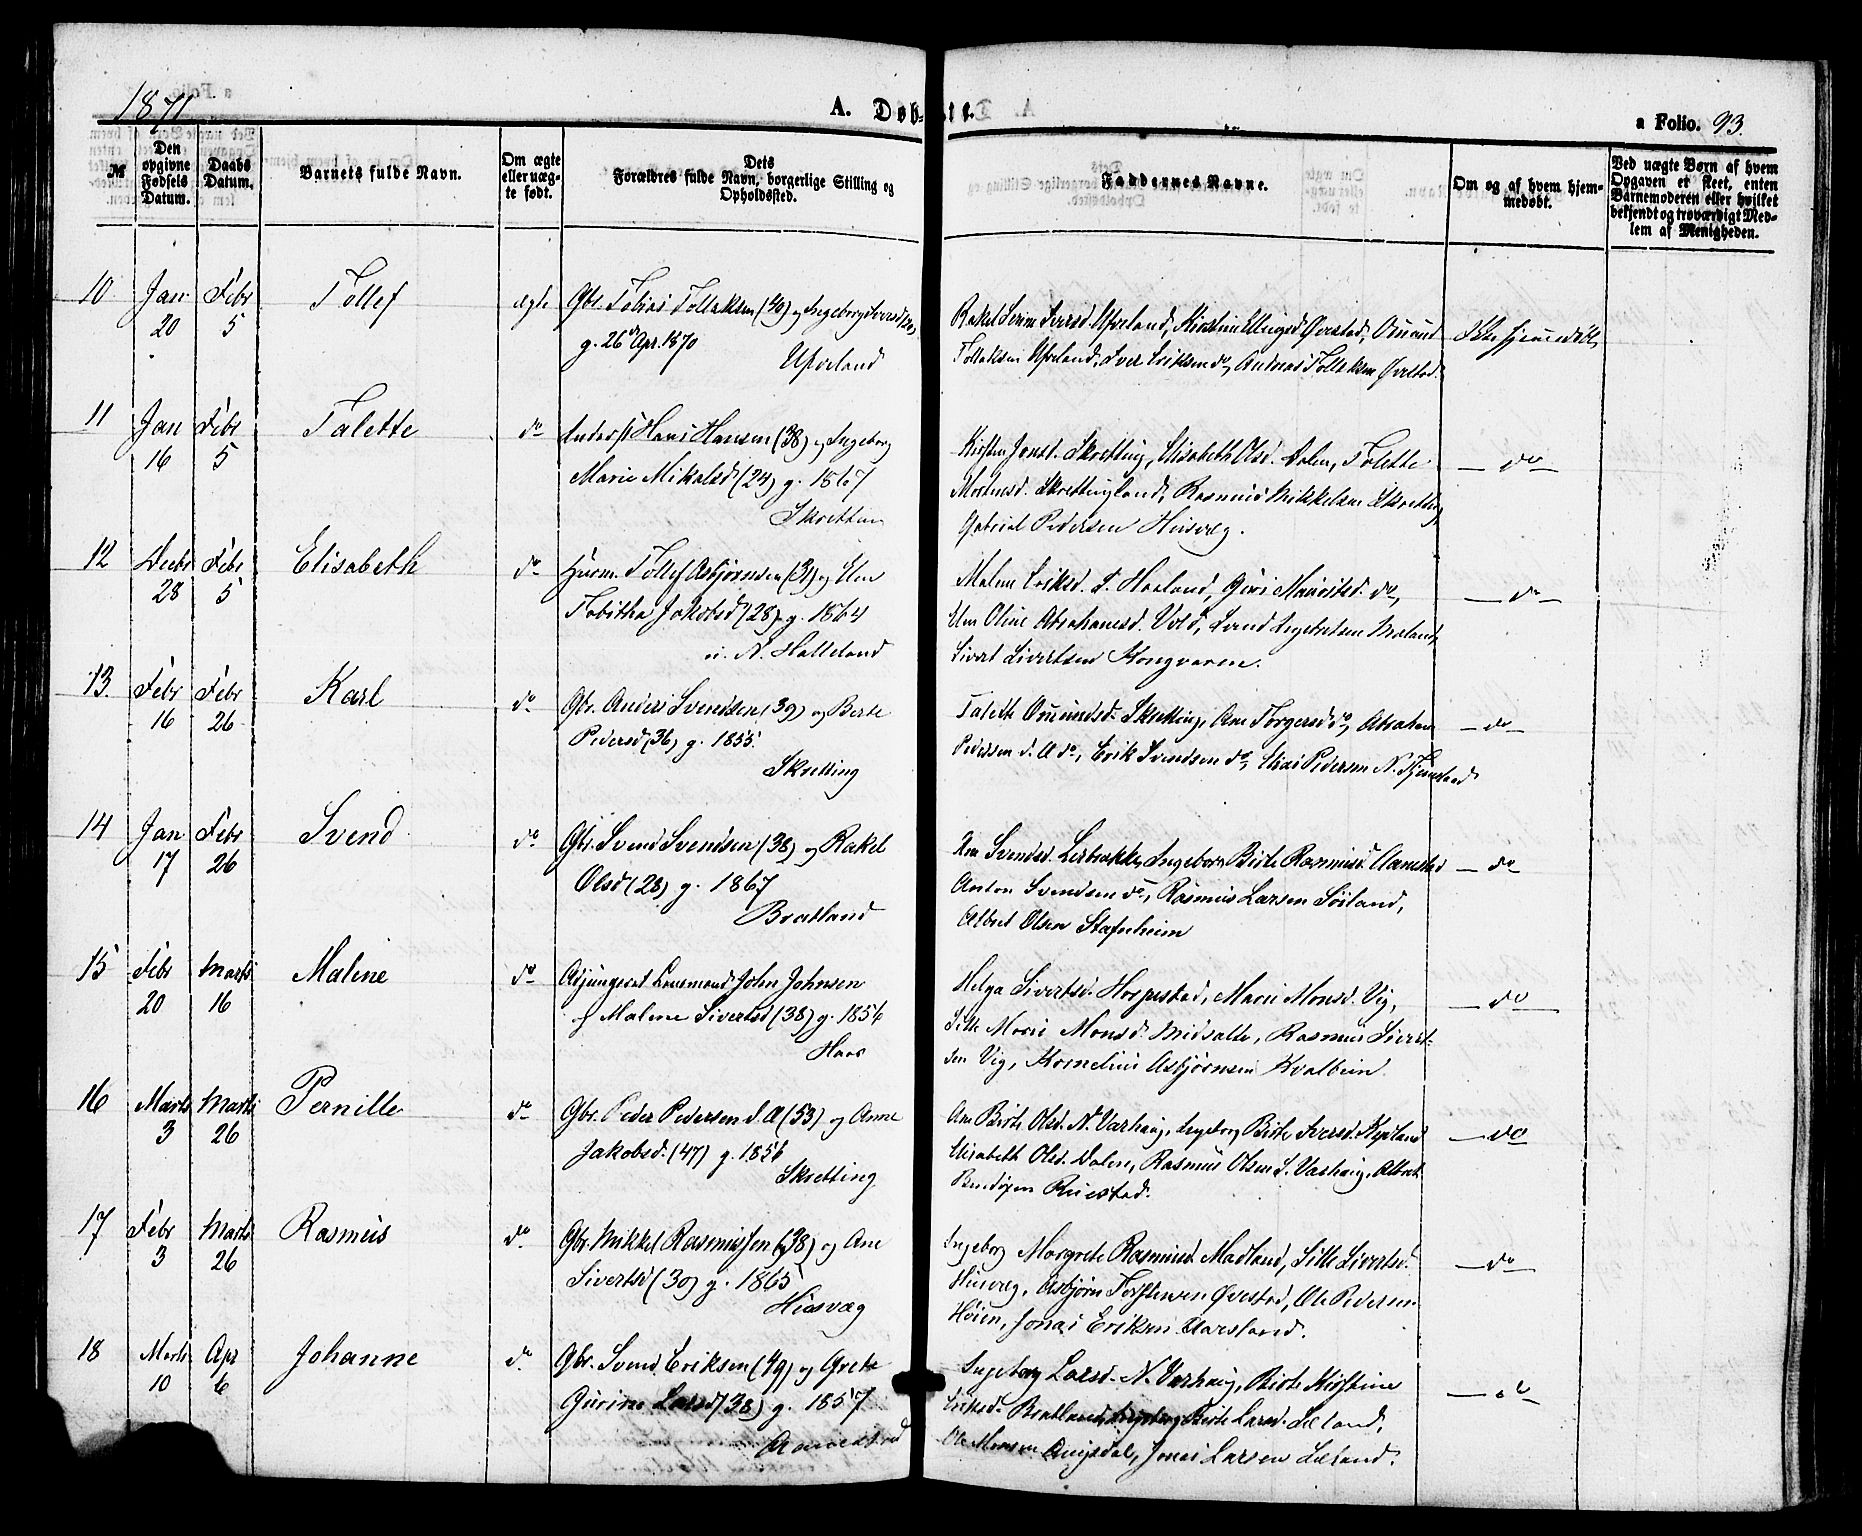 1871.
A. Døbte.
a Folio. 93.
№
Den opgivne Fødsels Datum.
Daabs Datum.
Barnets fulde Navn.
Om ægte eller uægte født.
Dets Forældres fulde Navn, borgerlige Stilling og Opholdssted.
Faddernes Navne.
Om og af hvem hjemmedøbt.
Ved uægte Børn af hvem Opgaven er skeet, enten Barnemoderen eller hvilket bekjendt og troværdigt Medlem af Menigheden.
10 Jan 20 Febr 5 Tollef ægte
Gbr. Tobias Tollaksen (40) og Ingeborg Iversd
g. 26 Apr. 1870
Ueland
Rakel Serine Iversd. Kirstine Ellingsd Øvestad, Omund
Tollaksen Iver Eriksen do, Andreas Tollaksen Øvestad.
Ikke hjemmedøbt
11 Jan 16 Febr 5 Talette do
Hans Hansen (38) og Ingeborg
Marie Mikalsd (24) g. 1867
Skretting
Kirsten Jonsd. Skretting, Elisabeth Olsd. Dalen, Tolette
Mortensd. Skrettingland, Rasmus Mikkelsen Skretting
Gabriel Pedersen Husvæg.
do
12 Decbr 28 Febr 5 Elisabeth do
Husm. Tollef Asbjørnsen (31) og Elen
Tobitha Jakobsd (28) g. 1864
u. N. Halleland
Malene Eriksd. S. Haaland, Guri Mauritsd. do,
Elen Oline Abrahamsd. Vold, Svend Ingebretsen
Sivert Sivertsen Kongvaren.
do
13 Febr 16 Febr 26 Karl do
Gbr. Anders Svendsen (39) og Berte
Pedersd (36) g. 1855.
Skretting
Talette Omundsd. Skretting, Ane Torgersd do, Abraham
Pedersen d. A do, Erik Svendsen do, Elias Pedersen N.
do
14 Jan 17 Febr 26 Svend do
Gbr. Svend Svendsen (38) og Rakel
Olsd (28) g. 1867
Bratland
Ane Svendsd. Ingeborg Birte Rasmusd Aanestad
Anton Svendsen do, Rasmus Larsen Søiland,
Albret Olsen Stafnheim
do
15 Febr 20 Marts 16 Malene do
Adjungeret Lensmand John Johnsen
& Malene Sivertsd (38) g. 1856
Haar
Helga Sivertsd. Horpestad, Marie Monsd. Vig,
Sille Marie Monsd. Midsalte, Rasmus Sivert-
sen Vig, Kornelius Asbjørnsen Kvalbein.
do
16 Marts 3 Marts 26 Pernille do
Gbr. Peder Pedersen d. A (53) og Anne
Jakobsd. (47) g. 1856
Skretting
Ane Birte Olsd. N. Varhaug, Ingeborg Birte Iversd.
Elisabeth Olsd. Dalen, Rasmus Olsen S. Varhaug, Albert
Bendixen Ruestad.
do
17 Febr 3 Marts 26 Rasmus do
Gbr. Mikkel Rasmussen (38) og Ane
Sivertsd (30) g. 1865
Husvæg
Ingeborg Margrete Rasmusd Madland, Sille Sivertsd.
Husvæg, Asbjørn Torstensen Øvestad, Ole Pedersen
Høien, Jonas Eriksen Aarsland.
do
18 Marts 10 Apr 6 Johanne do
Gbr. Svend Eriksen (49) og Grete
Gurine Larsd (38) g. 1857
Aanestad
Ingeborg Larsd. N. Varhaug, Birte Kirstine
Eriksd. Bratland, Ingeborg Birte Larsd. Lieland,
Ole Monsen Ougsdal, Jonas Larsen Lieland.
do